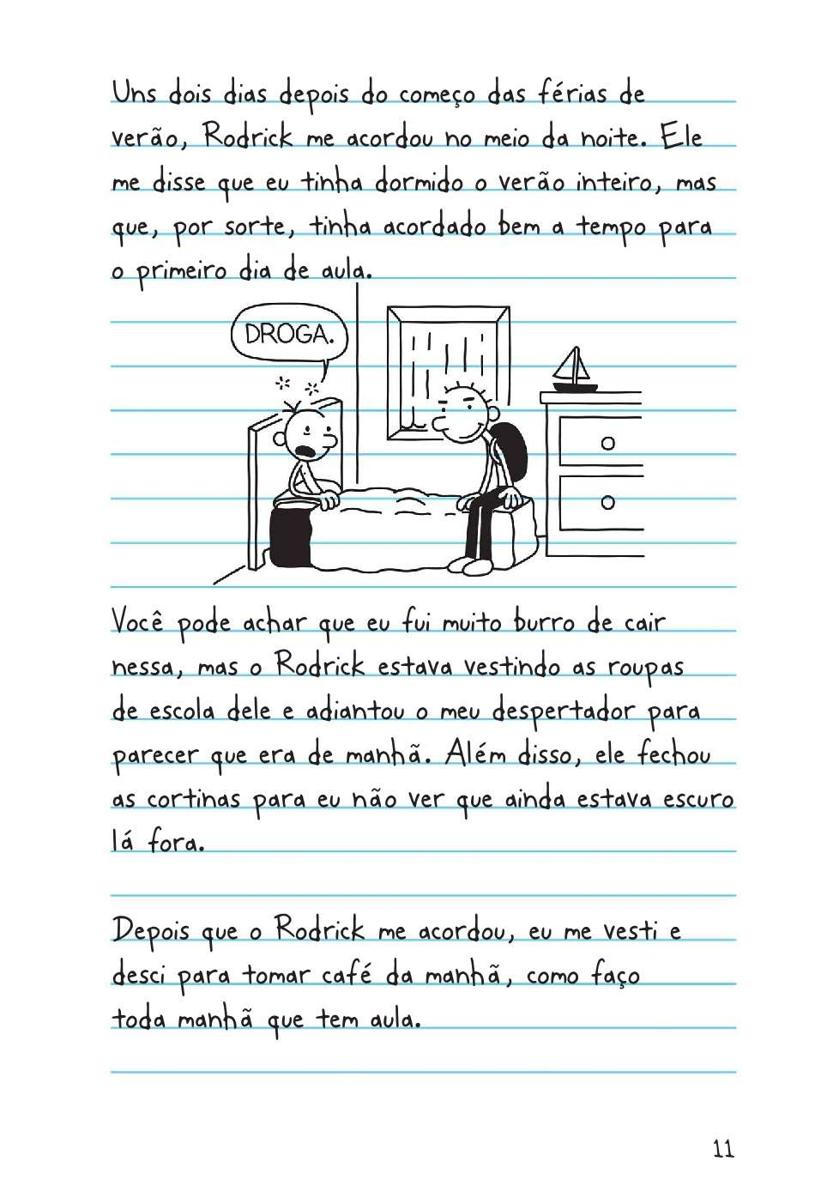 Uns dois dias depois do começo das férias de
verão, Rodrick me acordou no meio da noite. Ele
me disse que eu tinha dormido o verão inteiro, mas
que, por sorte, tinha acordado bem a tempo para
o primeiro dia de aula.
DROGA.
Você pode achar que eu fui muito burro de cair
nessa, mas o Rodrick estava vestindo as roupas
de escola dele e adiantou o meu despertador para
parecer que era de manhã. Além disso, ele fechou
as cortinas para eu não ver que ainda estava escuro
lá fora.
Depois que o Rodrick me acordou, eu me vesti e
desci para tomar café da manhã, como faço
toda manhã que tem aula.
11